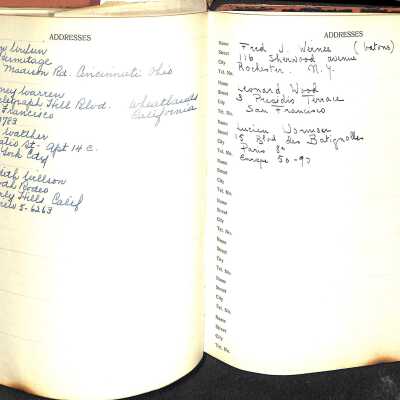 ADDRESSES
Madison Rd. Cincinnati Ohio
Warren
Hill Blvd. Wheatlands
Francisco California
9783
St. Apt 14 C.
York City
Willson
Rodeo
Hills, Calif
5-6263
ADDRESSES
Name Fred J. Wernes (batons)
Street 116 Sherwood avenue
City Rochester. N.Y.
Tel. No.
Name Leonard Wood
Street 3 Presidio Terrace
City San Francisco
Tel. No.
Name Lucien Wormser
Street 15 Blvd des Batignolles
City Paris 8e
Tel. No. Europe 50-97
Name
Street
City
Tel. No.
Name
Street
City
Tel. No.
Name
Street
City
Tel. No.
Name
Street
City
Tel. No.
Name
Street
City
Tel. No.